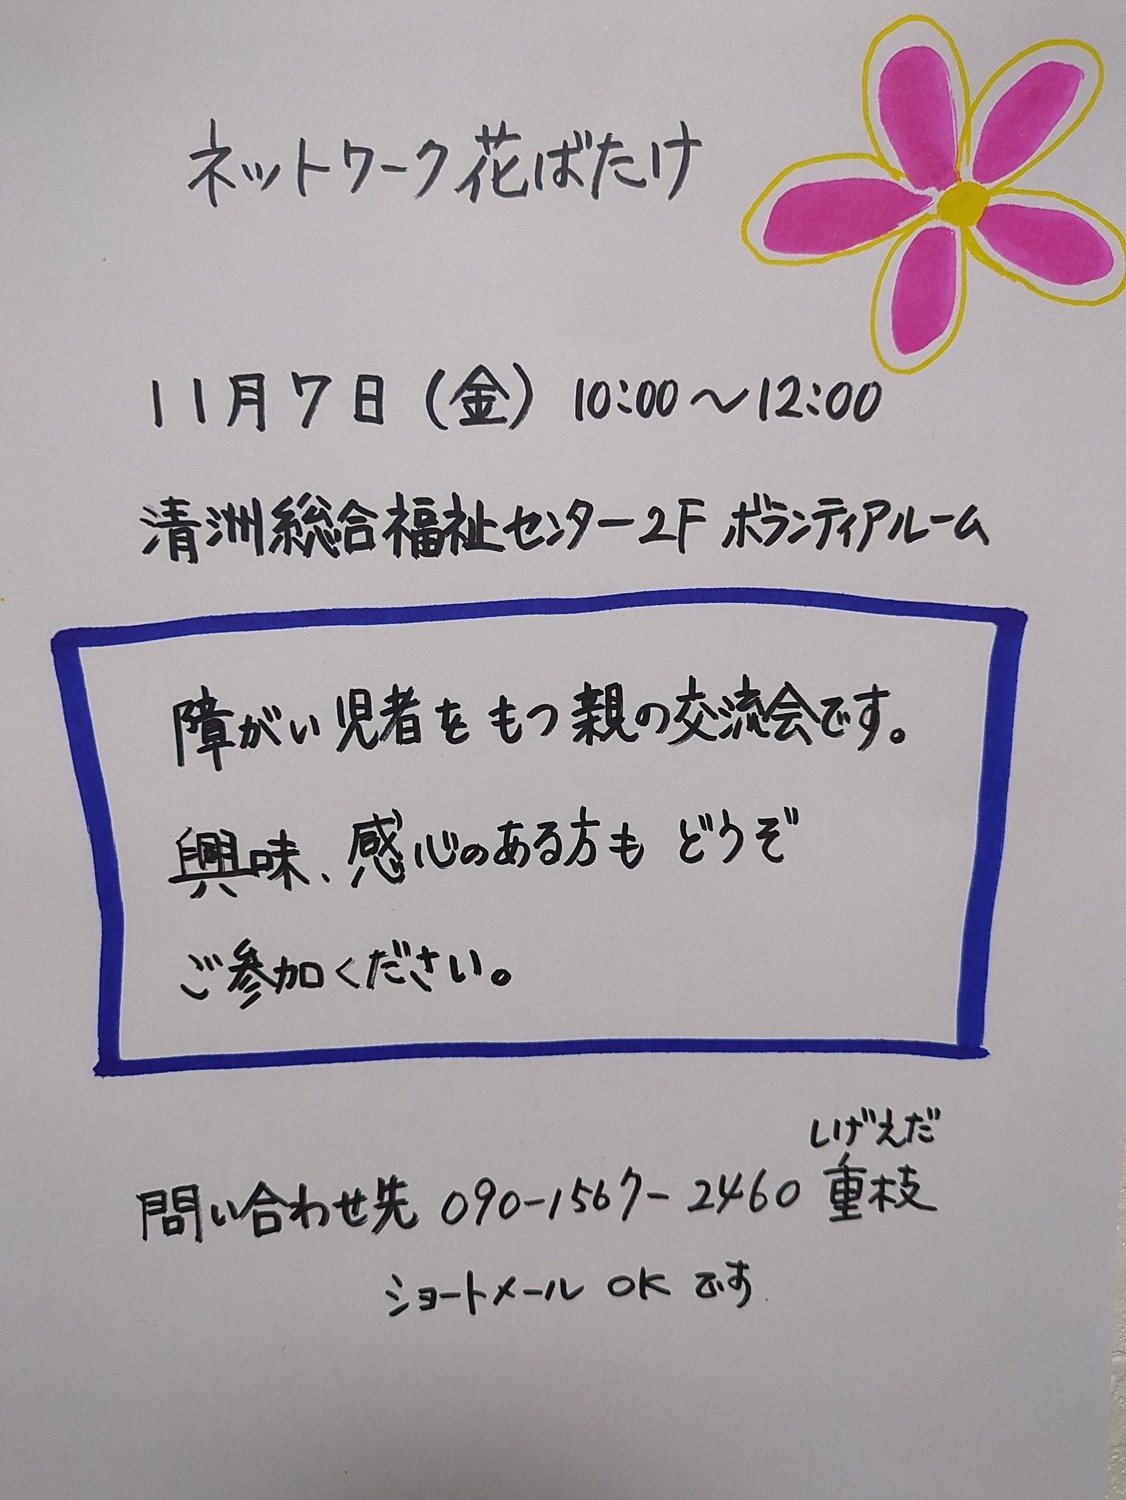 ネットワーク花ばたけ
11月7日(金) 10:00〜12:00
清洲総合福祉センター2F ボランティアルーム
障がい児者をもつ親の交流会です。
興味、感心のある方も どうぞ
ご参加ください。
しげえだ
問い合わせ先 090-1567-2460 重枝
ショートメール OK です